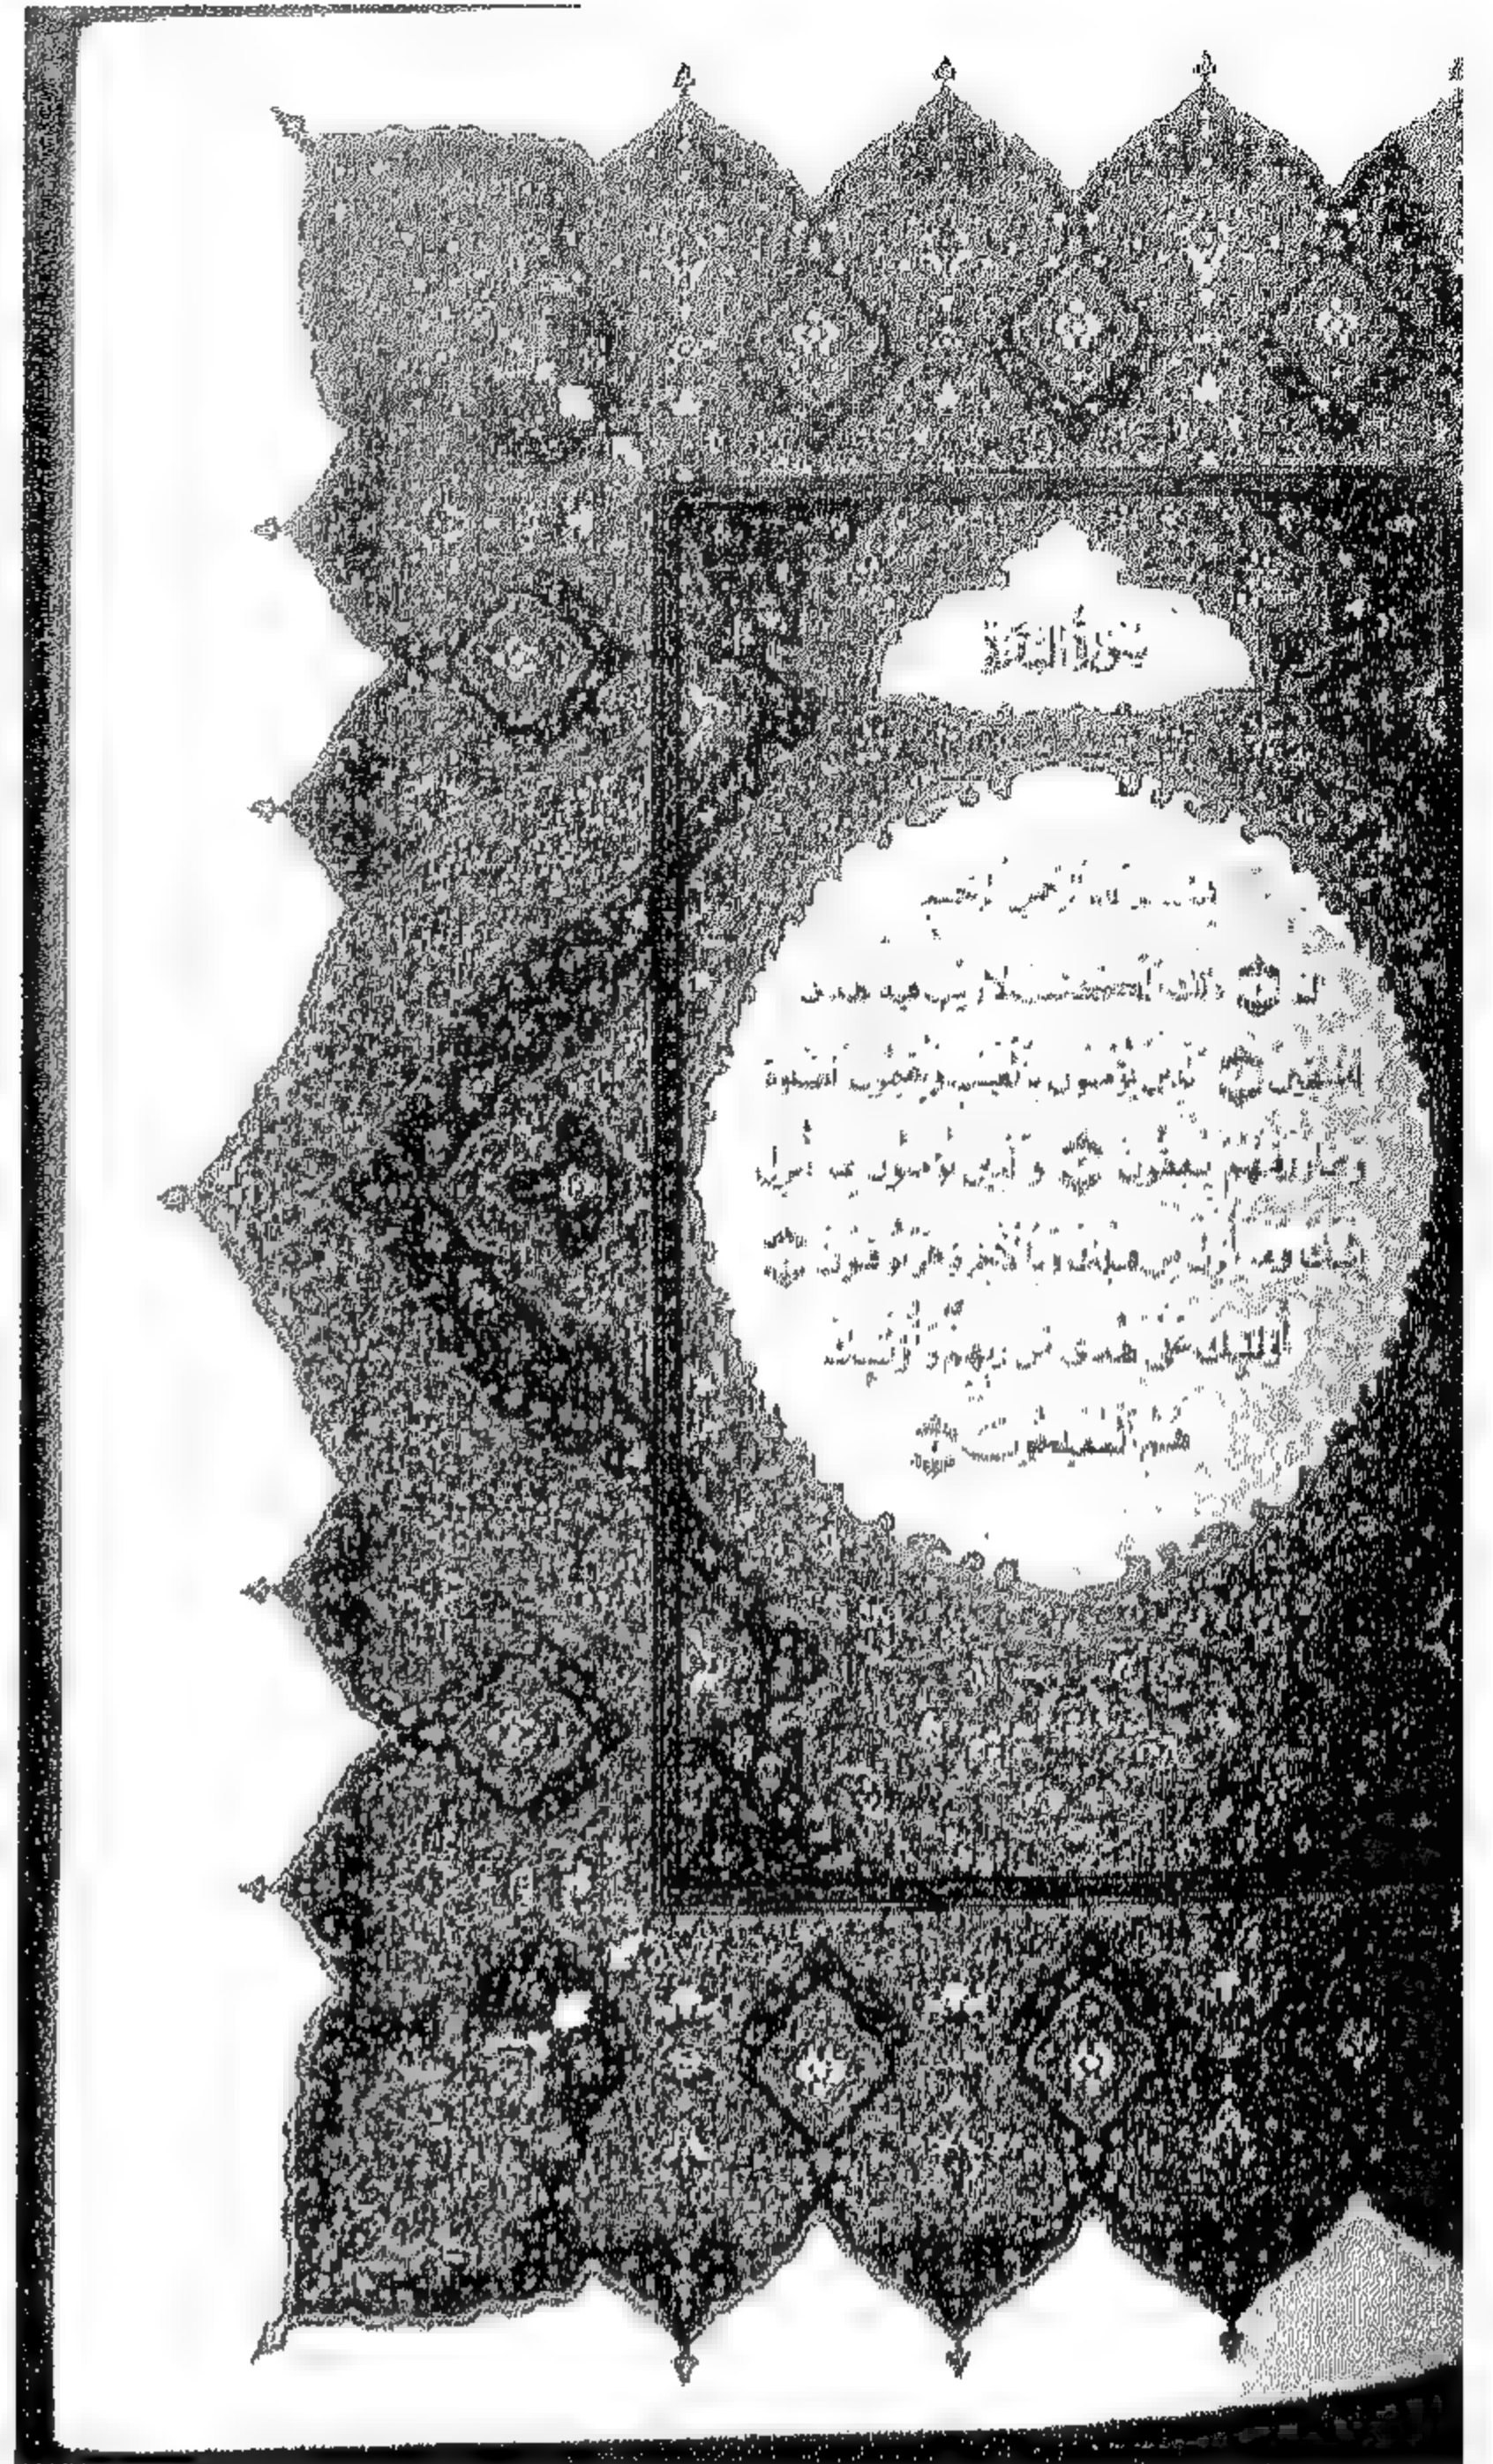 بسم الله الرحمن الرحيم
الم ذلك الكتاب لا ريب فيه هدى
للمتقين الذين يؤمنون بالغيب ويقيمون الصلوة
ومما رزقنهم ينفقون والذين يؤمنون بما أنزل
إليك وما أنزل من قبلك وبالآخرة هم يوقنون
أولئك على هدى من ربهم وأولئك
هم المفلحون